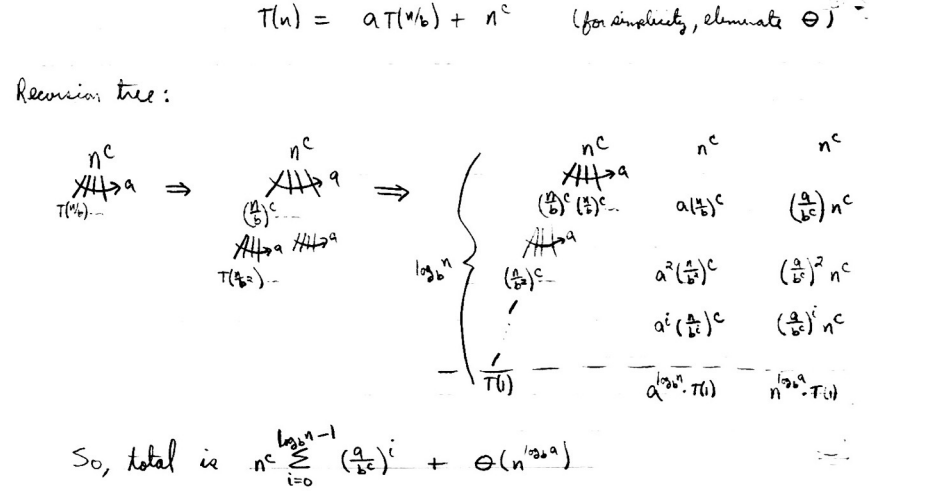 T(n) = aT(n/b) + n^c (for simplicity, eliminate Θ)
Recursion tree:
n^c n^c n^c n^c n^c
a ⇒ a ⇒ a
T(n/b)... (n/b)^c .... (n/b)^c (n/b)^c ... a(n/b)^c (a/b^c) n^c
a a a
log_b n
T(n/b²)... (n/b²)^c ... a²(n/b²)^c (a/b^c)² n^c
a^i (n/b^i)^c (a/b^c)^i n^c
T(1) a^{log_b n}·T(1) n^{log_b a}·T(1)
So, total is n^c Σ_{i=0}^{log_b n−1} (a/b^c)^i + Θ(n^{log_b a})